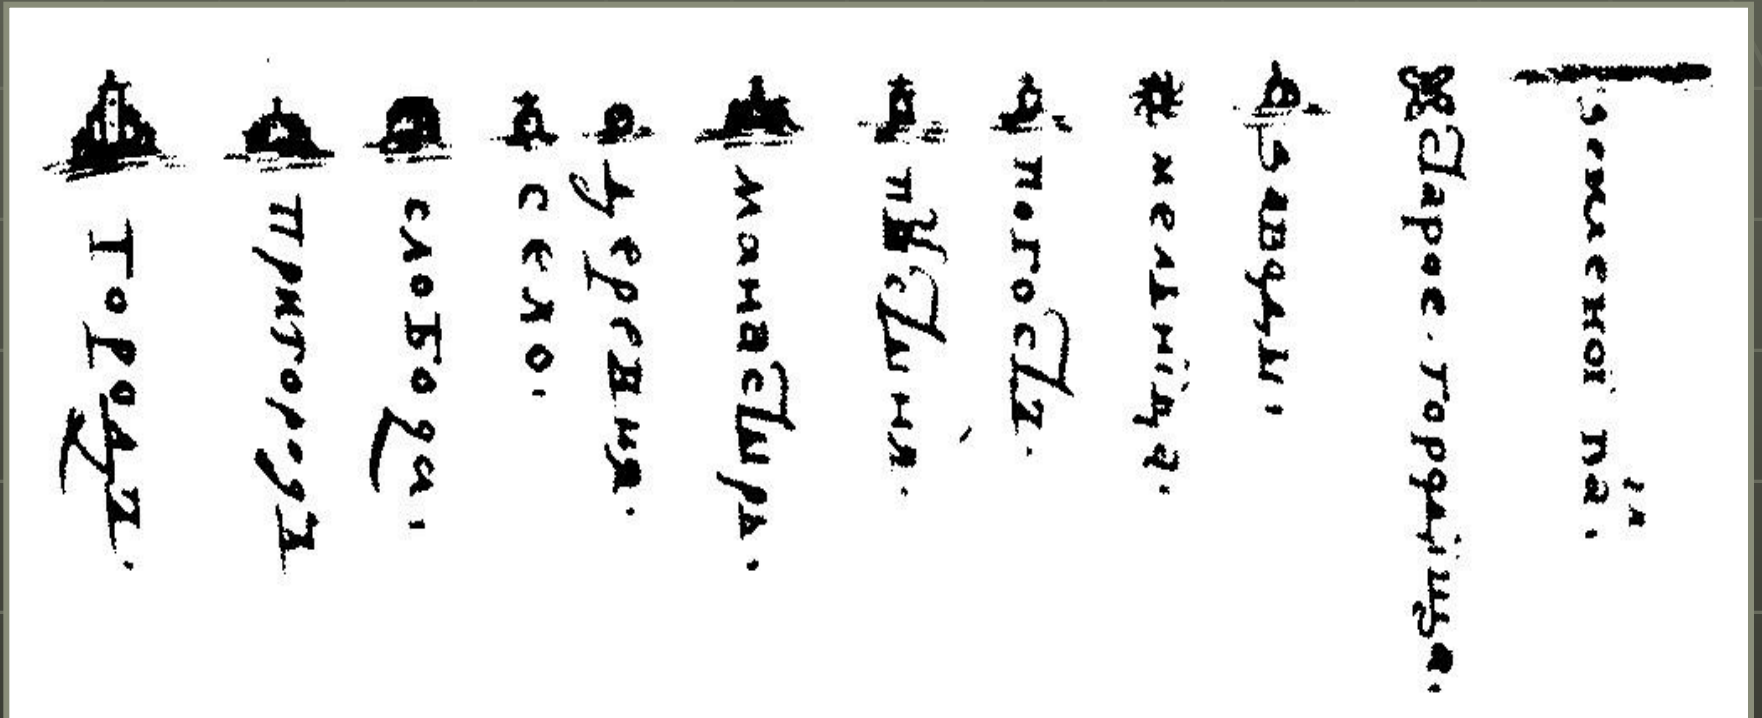 городъ.
пригородъ
слобода.
село.
деревня.
манастырь.
пустыня.
погостъ.
мелница.
заводы.
старое. городища.
земленои валъ.